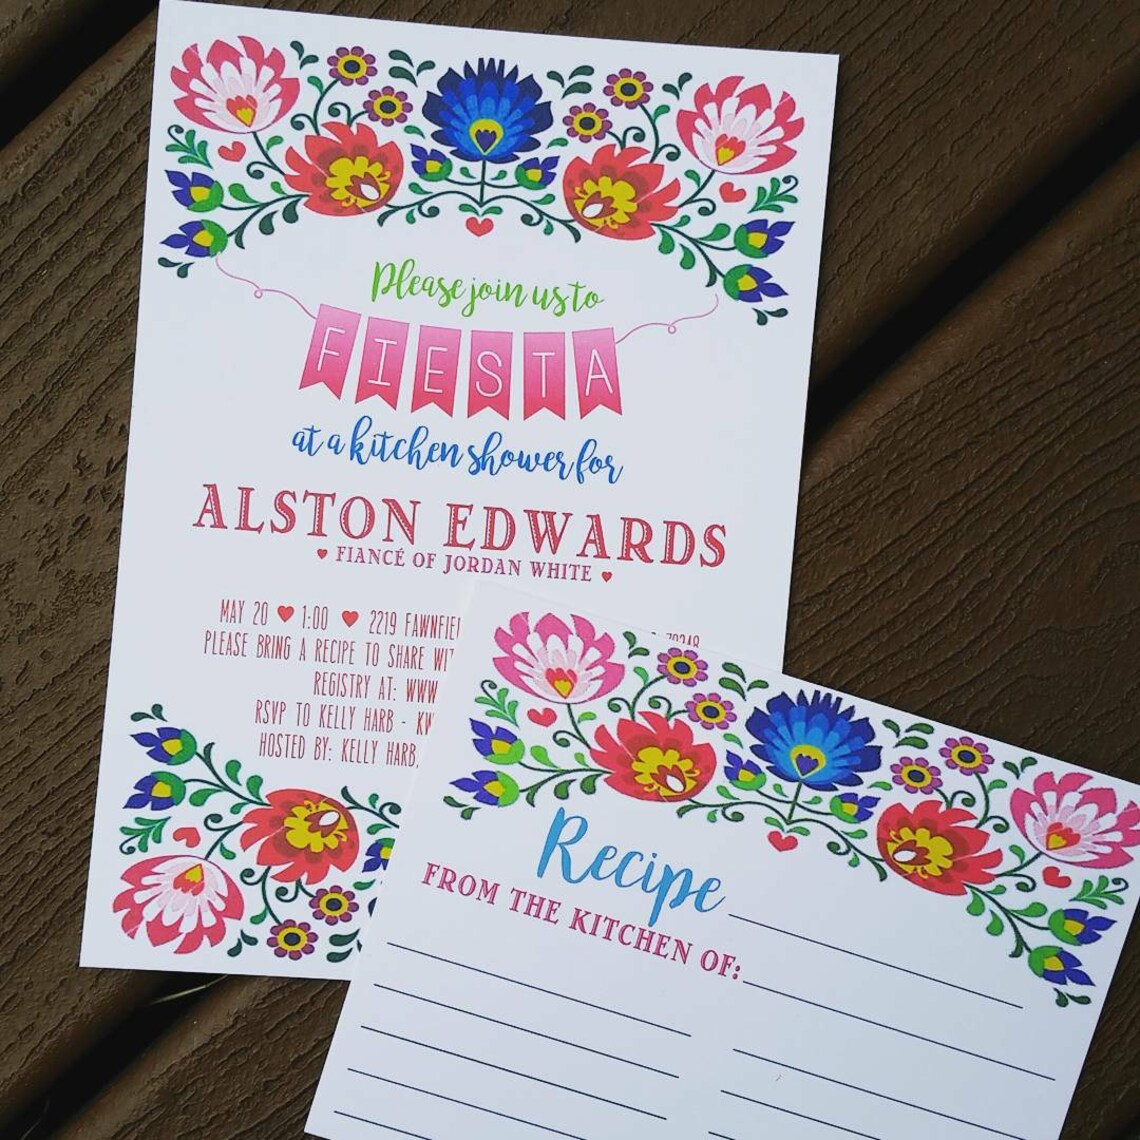 Please join us to
FIESTA
at a kitchen shower for
ALSTON EDWARDS
FIANCÉ OF JORDAN WHITE
MAY 20 1:00 2219
PLEASE BRING A RECIPE TO SHARE
REGISTRY AT: WWW
RSVP TO KELLY HARB -
HOSTED BY: KELLY HARB,
Recipe
FROM THE KITCHEN OF: